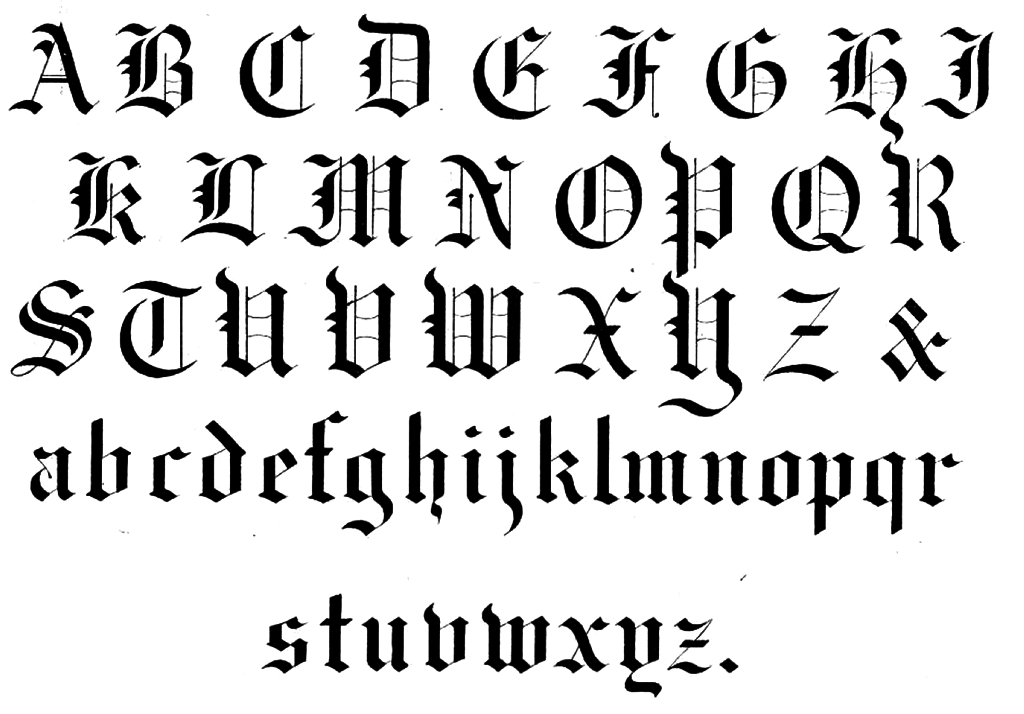 A B C D E F G H I
K L M N O P Q R
S T U V W X Y Z &
abcdefghijklmnopqr
stuvwxyz.